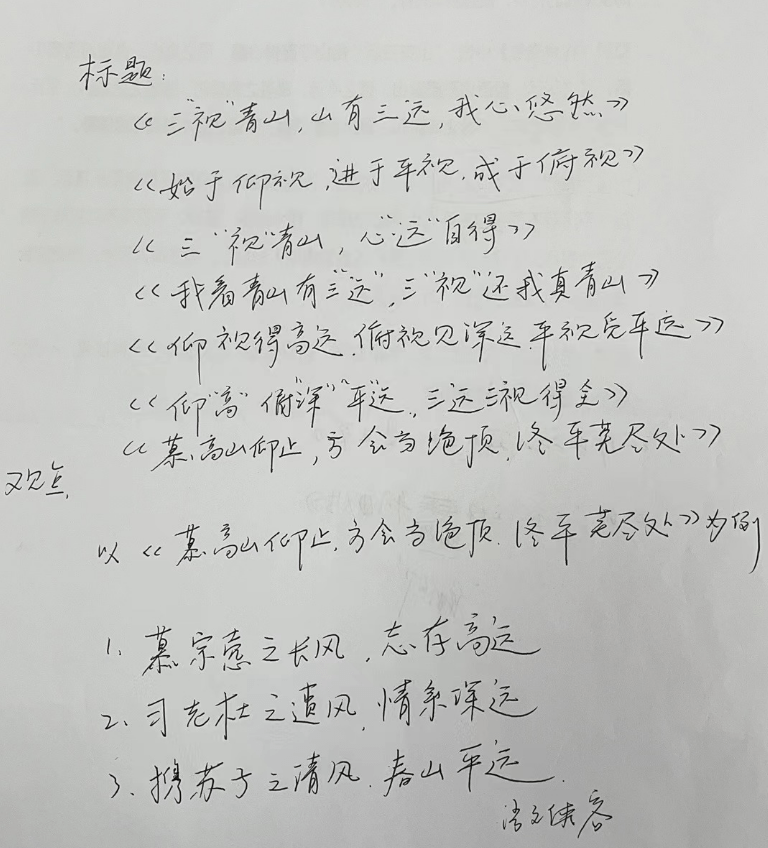 标题:
《三"视"青山,山有三远,我心悠然》
《始于仰视,进于平视,成于俯视》
《三"视"青山,心"远"自得》
《我看青山有"三远",三"视"还我真青山》
《仰视得高远,俯视见深远,平视览平远》
《仰"高"俯"深""平"远,三远三视得全》
《慕高山仰止,方会当绝顶,终平芜尽处》
观点,
以《慕高山仰止,方会当绝顶,终平芜尽处》为例
1、慕宗悫之长风,志存高远
2、习老杜之遗风,情系深远
3、携苏子之清风,春山平远.
语文侠客